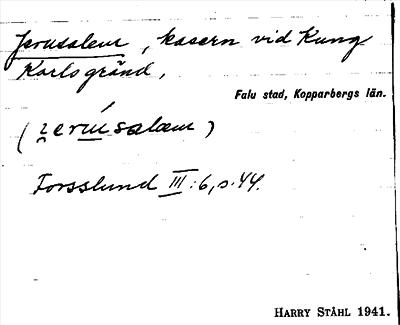 Jerusalem, kasern vid Kung
Karlsgränd,
Falu stad, Kopparbergs län.
(jerúsalem)
Forsslund III:6, s. 44.
HARRY STÅHL 1941.